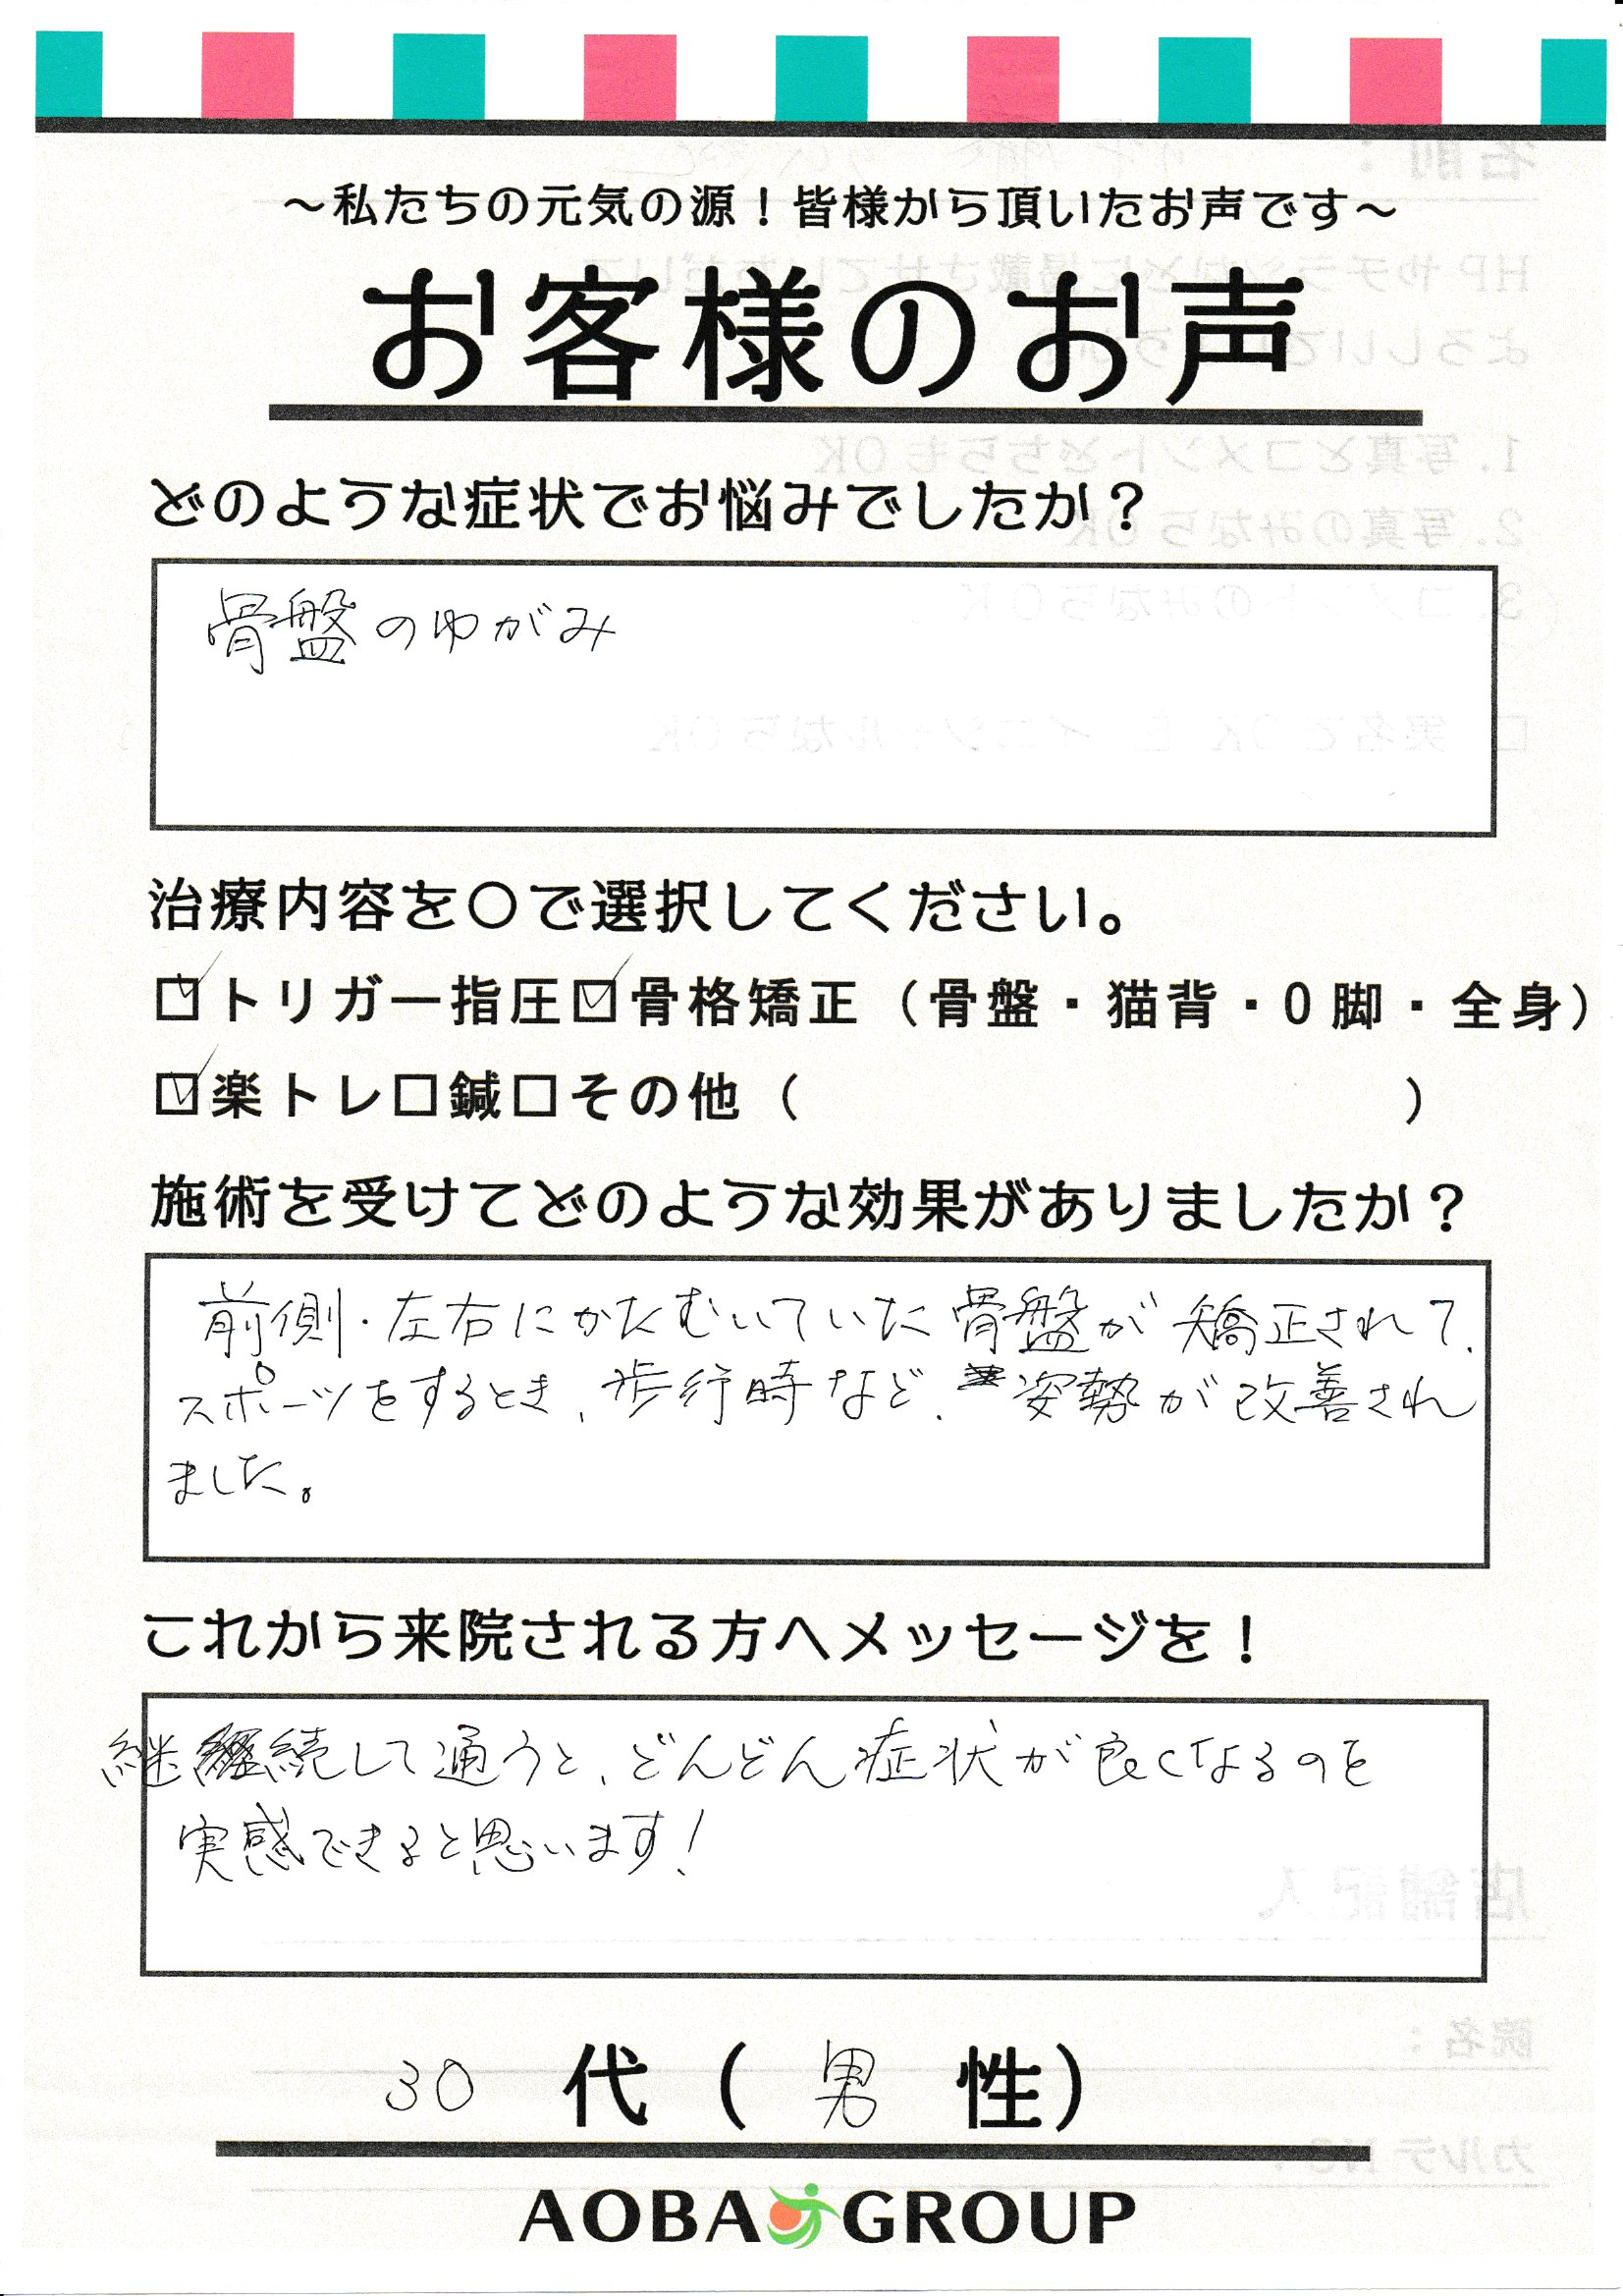 ～私たちの元気の源！皆様から頂いたお声です～
お客様のお声
どのような症状でお悩みでしたか？
骨盤のゆがみ
治療内容を〇で選択してください。
☑トリガー指圧☑骨格矯正（骨盤・猫背・O脚・全身）
☑楽トレ□鍼□その他（　　　　　　　　　　）
施術を受けてどのような効果がありましたか？
前側・左右にかたむいていた骨盤が矯正されて、
スポーツをするとき、歩行時など、姿勢が改善され
ました。
これから来院される方へメッセージを！
継続して通うと、どんどん症状が良くなるのを
実感できると思います！
30代（男性）
AOBA GROUP